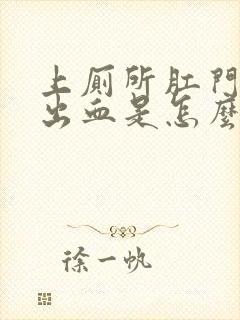 上廁所肛門
出血是怎麼
徐一帆